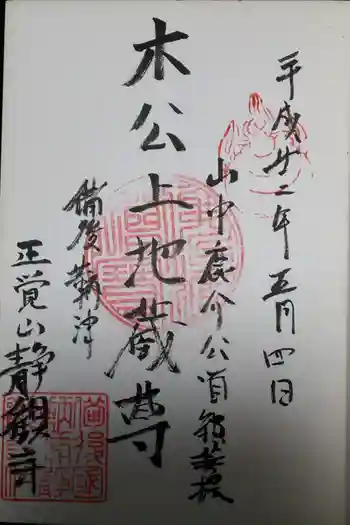 平成廿二年五月四日
山中鹿介公首
菩提
木公上地蔵尊
備後鞆津
正覚山静観寺